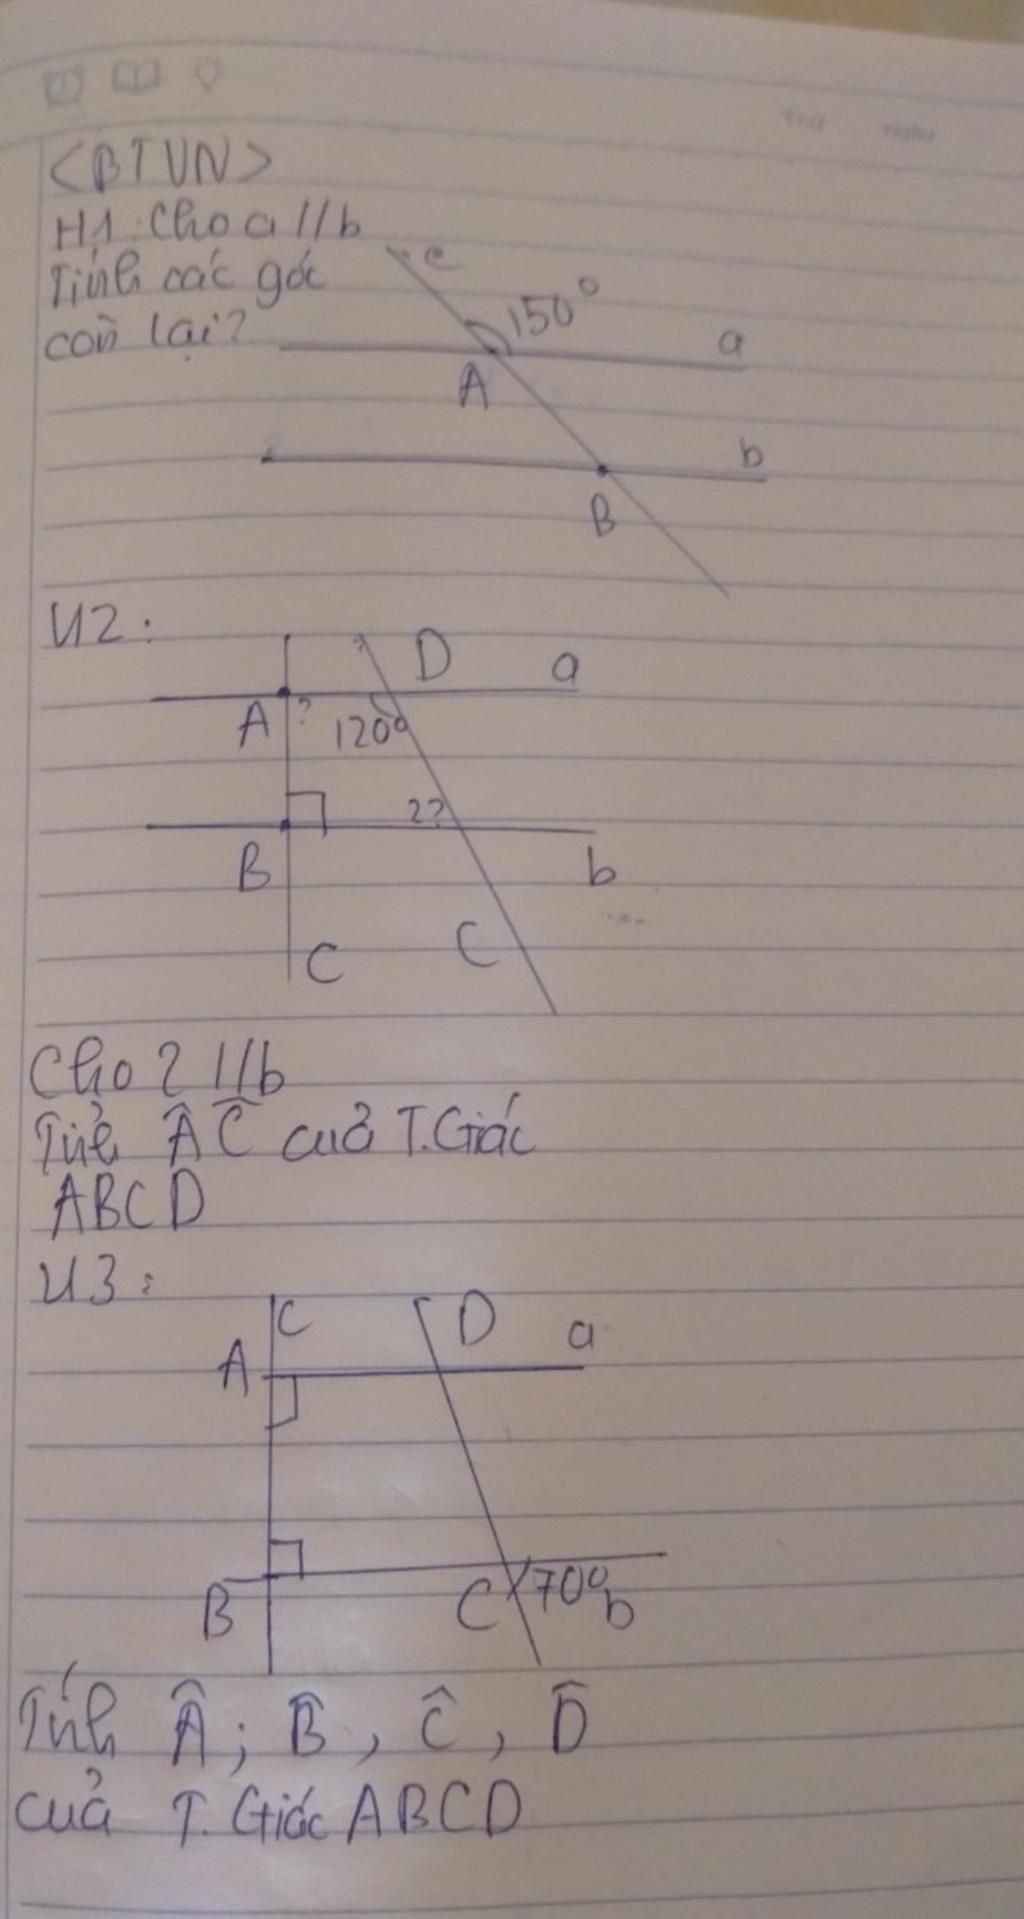 <BTVN>
H1: Cho a // b
Tính các góc
còn lại?
c
150°
a
A
b
B
H2:
D
a
A
?
120°
??
B
b
C
C
Cho a // b
Tính Â Ĉ của T.Giác
ABCD
H3:
C
D
a
A
B
C
70°
b
Tính Â; B̂, Ĉ, D̂
của T.Giác ABCD